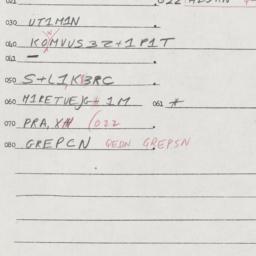 030 UT1M1N
040 KOMVUS3Z+1P1T
061 —
050 S+L1K3RC
060 M1RETUEJG+1M 061 #
070 PRA,XN (022
080 GREPCN GEDN GREPSN